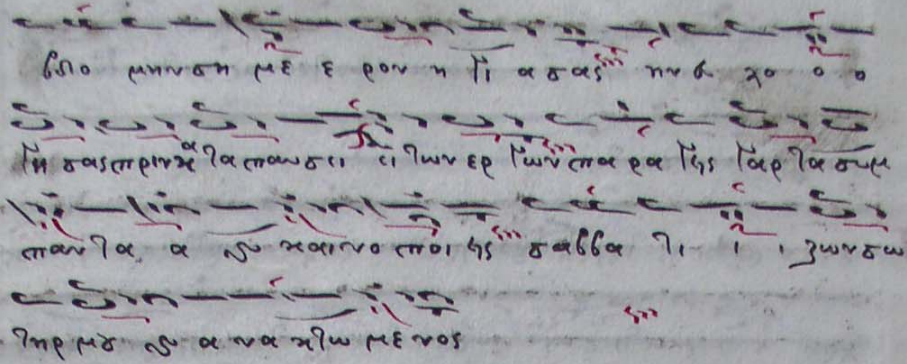 βδο μην ση με ε ρον η γι α σας ην ευ λο ο ο
γη σας πριν κα τα παυ σει ει των ερ γων πα ρα γης γαρ τα συμ
παν τα α και και νο ποι ης σαβ βα τι ι ι ζων σω
τηρ μου και α να κτω με νος